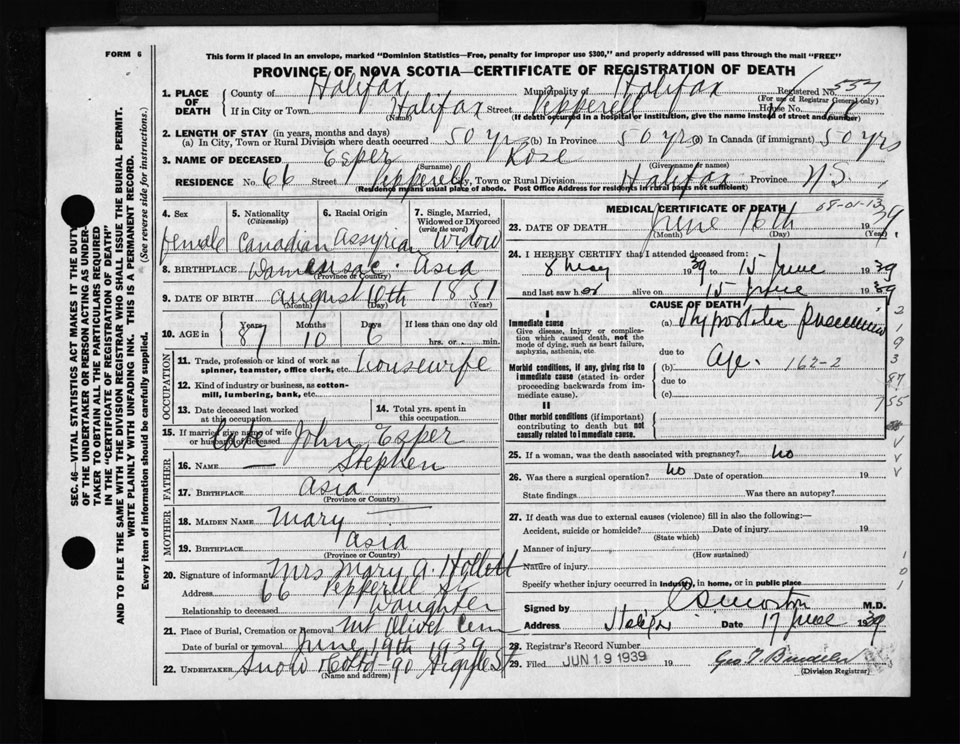 FORM 6
This form if placed in an envelope, marked "Dominion Statistics—Free, penalty for improper use $300," and properly addressed will pass through the mail "FREE"
PROVINCE OF NOVA SCOTIA—CERTIFICATE OF REGISTRATION OF DEATH
1. PLACE OF DEATH County of Halifax Municipality of Halifax Registered No. 557
(For use of Registrar General only)
If in City or Town Halifax Street Pepperell House No. 66
(Name) (If death occurred in a hospital or institution, give the name instead of street and number)
2. LENGTH OF STAY (in years, months and days)
(a) In City, Town or Rural Division where death occurred 50 yrs (b) in Province 50 yrs (c) in Canada (if immigrant) 50 yrs
3. NAME OF DECEASED Esper Rose
(Surname) (Given name or names)
RESIDENCE No. 66 Street Pepperell City, Town or Rural Division Halifax Province N.S.
(Residence means usual place of abode. Post Office Address for residents in rural parts not sufficient)
4. Sex female
5. Nationality (Citizenship) Canadian
6. Racial Origin Assyrian
7. Single, Married, Widowed or Divorced (write the word) Widow
8. BIRTHPLACE Asia
(Province or Country)
9. DATE OF BIRTH August 10th 1851
(Month) (Day) (Year)
10. AGE in Years 87 Months 10 Days 6 If less than one day old
hrs. or min.
OCCUPATION
11. Trade, profession or kind of work as spinner, teamster, office clerk, etc. Housewife
12. Kind of industry or business, as cotton-mill, lumbering, bank, etc.
13. Date deceased last worked at this occupation
14. Total yrs. spent in this occupation
15. If married give name of wife or husband of deceased Late John Esper
FATHER
16. NAME — Stephen
17. BIRTHPLACE Asia
(Province or Country)
MOTHER
18. MAIDEN NAME Mary —
19. BIRTHPLACE Asia
(Province or Country)
20. Signature of informant Mrs Mary A. Hollett
Address 66 Pepperell St
Relationship to deceased Daughter
21. Place of Burial, Cremation or Removal Mt Olivet Cem
Date of burial or removal June 19th 1939
22. UNDERTAKER Snow & Co Ltd - 90 Argyle St
(Name and address)
MEDICAL CERTIFICATE OF DEATH 68-01-13
23. DATE OF DEATH June 16th 1939
(Month) (Day) (Year)
24. I HEREBY CERTIFY that I attended deceased from:
8 May 1939 to 15 June 1939
and last saw her alive on 15 June 1939
CAUSE OF DEATH
I
Immediate cause (a) Hypostatic pneumonia
Give disease, injury or complication which caused death, not the mode of dying, such as heart failure, asphyxia, asthenia, etc.
due to
(b) Age. 162-2
Morbid conditions, if any, giving rise to immediate cause (stated in order proceeding backwards from immediate cause).
due to
(c)
II
Other morbid conditions (if important) contributing to death but not causally related to immediate cause.
25. If a woman, was the death associated with pregnancy? no
26. Was there a surgical operation? no Date of operation 19
State findings Was there an autopsy?
27. If death was due to external causes (violence) fill in also the following:—
Accident, suicide or homicide? Date of injury 19
(State which)
Manner of injury
(How sustained)
Nature of injury
Specify whether injury occurred in industry, in home, or in public place
Signed by M.D.
Address Halifax Date 17 June 1939
28. Registrar's Record Number
29. Filed JUN 19 1939 19
(Division Registrar)
SEC. 46—VITAL STATISTICS ACT MAKES IT THE DUTY
OF THE UNDERTAKER OR PERSON ACTING AS UNDER-
TAKER TO OBTAIN ALL THE PARTICULARS REQUIRED
IN THE "CERTIFICATE OF REGISTRATION OF DEATH"
AND TO FILE THE SAME WITH THE DIVISION REGISTRAR WHO SHALL ISSUE THE BURIAL PERMIT.
WRITE PLAINLY WITH UNFADING INK. THIS IS A PERMANENT RECORD.
Every item of information should be carefully supplied. (See reverse side for instructions.)